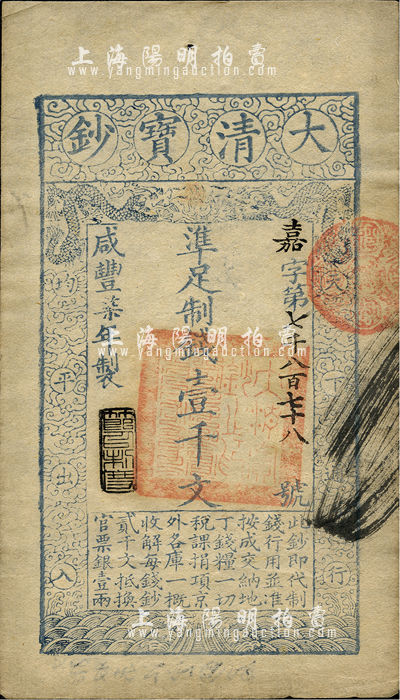 上海陽明拍賣
www.yangmingauction.com
大清寶鈔
嘉字第七千八百七十八號
準足制錢壹千文
咸豐柒年製
天下
行
均平出入
此鈔即代制
錢行用並准
按成交納地
丁錢糧一切
稅課捐項京
外各庫一概
收解每錢鈔
貳千文抵換
官票銀壹兩
上海陽明拍賣
www.yangmingauction.com
上海陽明拍賣
www.yangmingauction.com